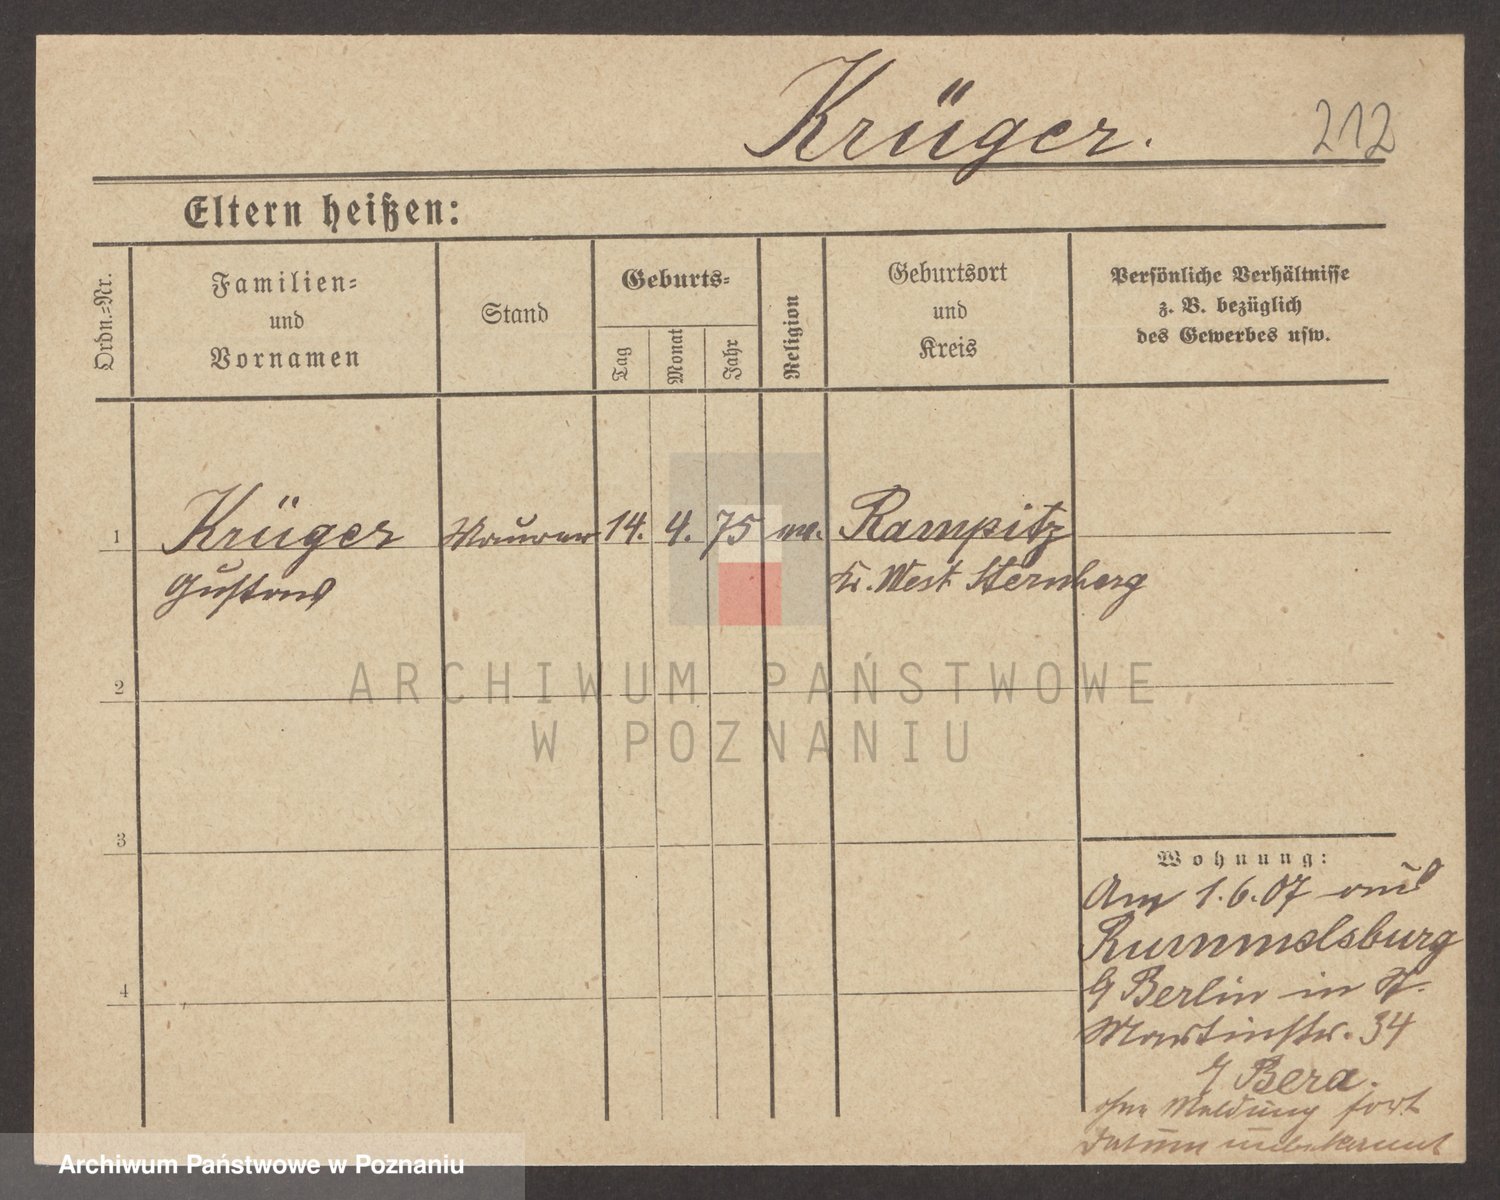 Krüger.
212
Eltern heißen:
Ordn.=Nr.
Familien=
und
Vornamen
Stand
Geburts=
Tag
Monat
Jahr
Religion
Geburtsort
und
Kreis
Persönliche Verhältnisse
z. B. bezüglich
des Gewerbes usw.
1
Krüger
Gustav
Maurer
14.
4.
75
ev.
Rampitz
Kr. West Sternberg
2
3
4
Wohnung:
Am 1.6.07 aus
Rummelsburg
b/ Berlin in St.
Martinstr. 34
b/ Bera.
ohne Meldung fort
Datum unbekannt
ARCHIWUM PAŃSTWOWE
W POZNANIU
Archiwum Państwowe w Poznaniu